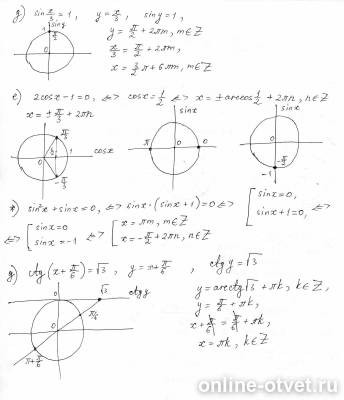 д) sin x/3 = 1, y = x/3, sin y = 1,
y = π/2 + 2πm, m∈Z
x/3 = π/2 + 2πm,
x = 3/2 π + 6πm, m∈Z
sin y
1
π/2
0
е) 2cosx - 1 = 0, <=> cosx = 1/2 <=> x = ± arccos 1/2 + 2πn, n∈Z
x = ± π/3 + 2πn
π/3
0
1/2
1
cosx
-π/3
sinx
π
0
0
sinx
0
-1
-π/2
ж) sin²x + sinx = 0, <=> sinx·(sinx + 1) = 0 <=> [ sinx = 0,
sinx + 1 = 0, <=>
<=> [ sinx = 0
sinx = -1
<=> [ x = πm, m∈Z
x = -π/2 + 2πn, n∈Z
g) ctg(x + π/6) = √3, y = x + π/6, ctg y = √3
y = arcctg √3 + πk, k∈Z,
y = π/6 + πk,
x + π/6 = π/6 + πk,
x = πk, k∈Z
0
√3
ctg y
π/6
0
π + π/6
online-otvet.ru